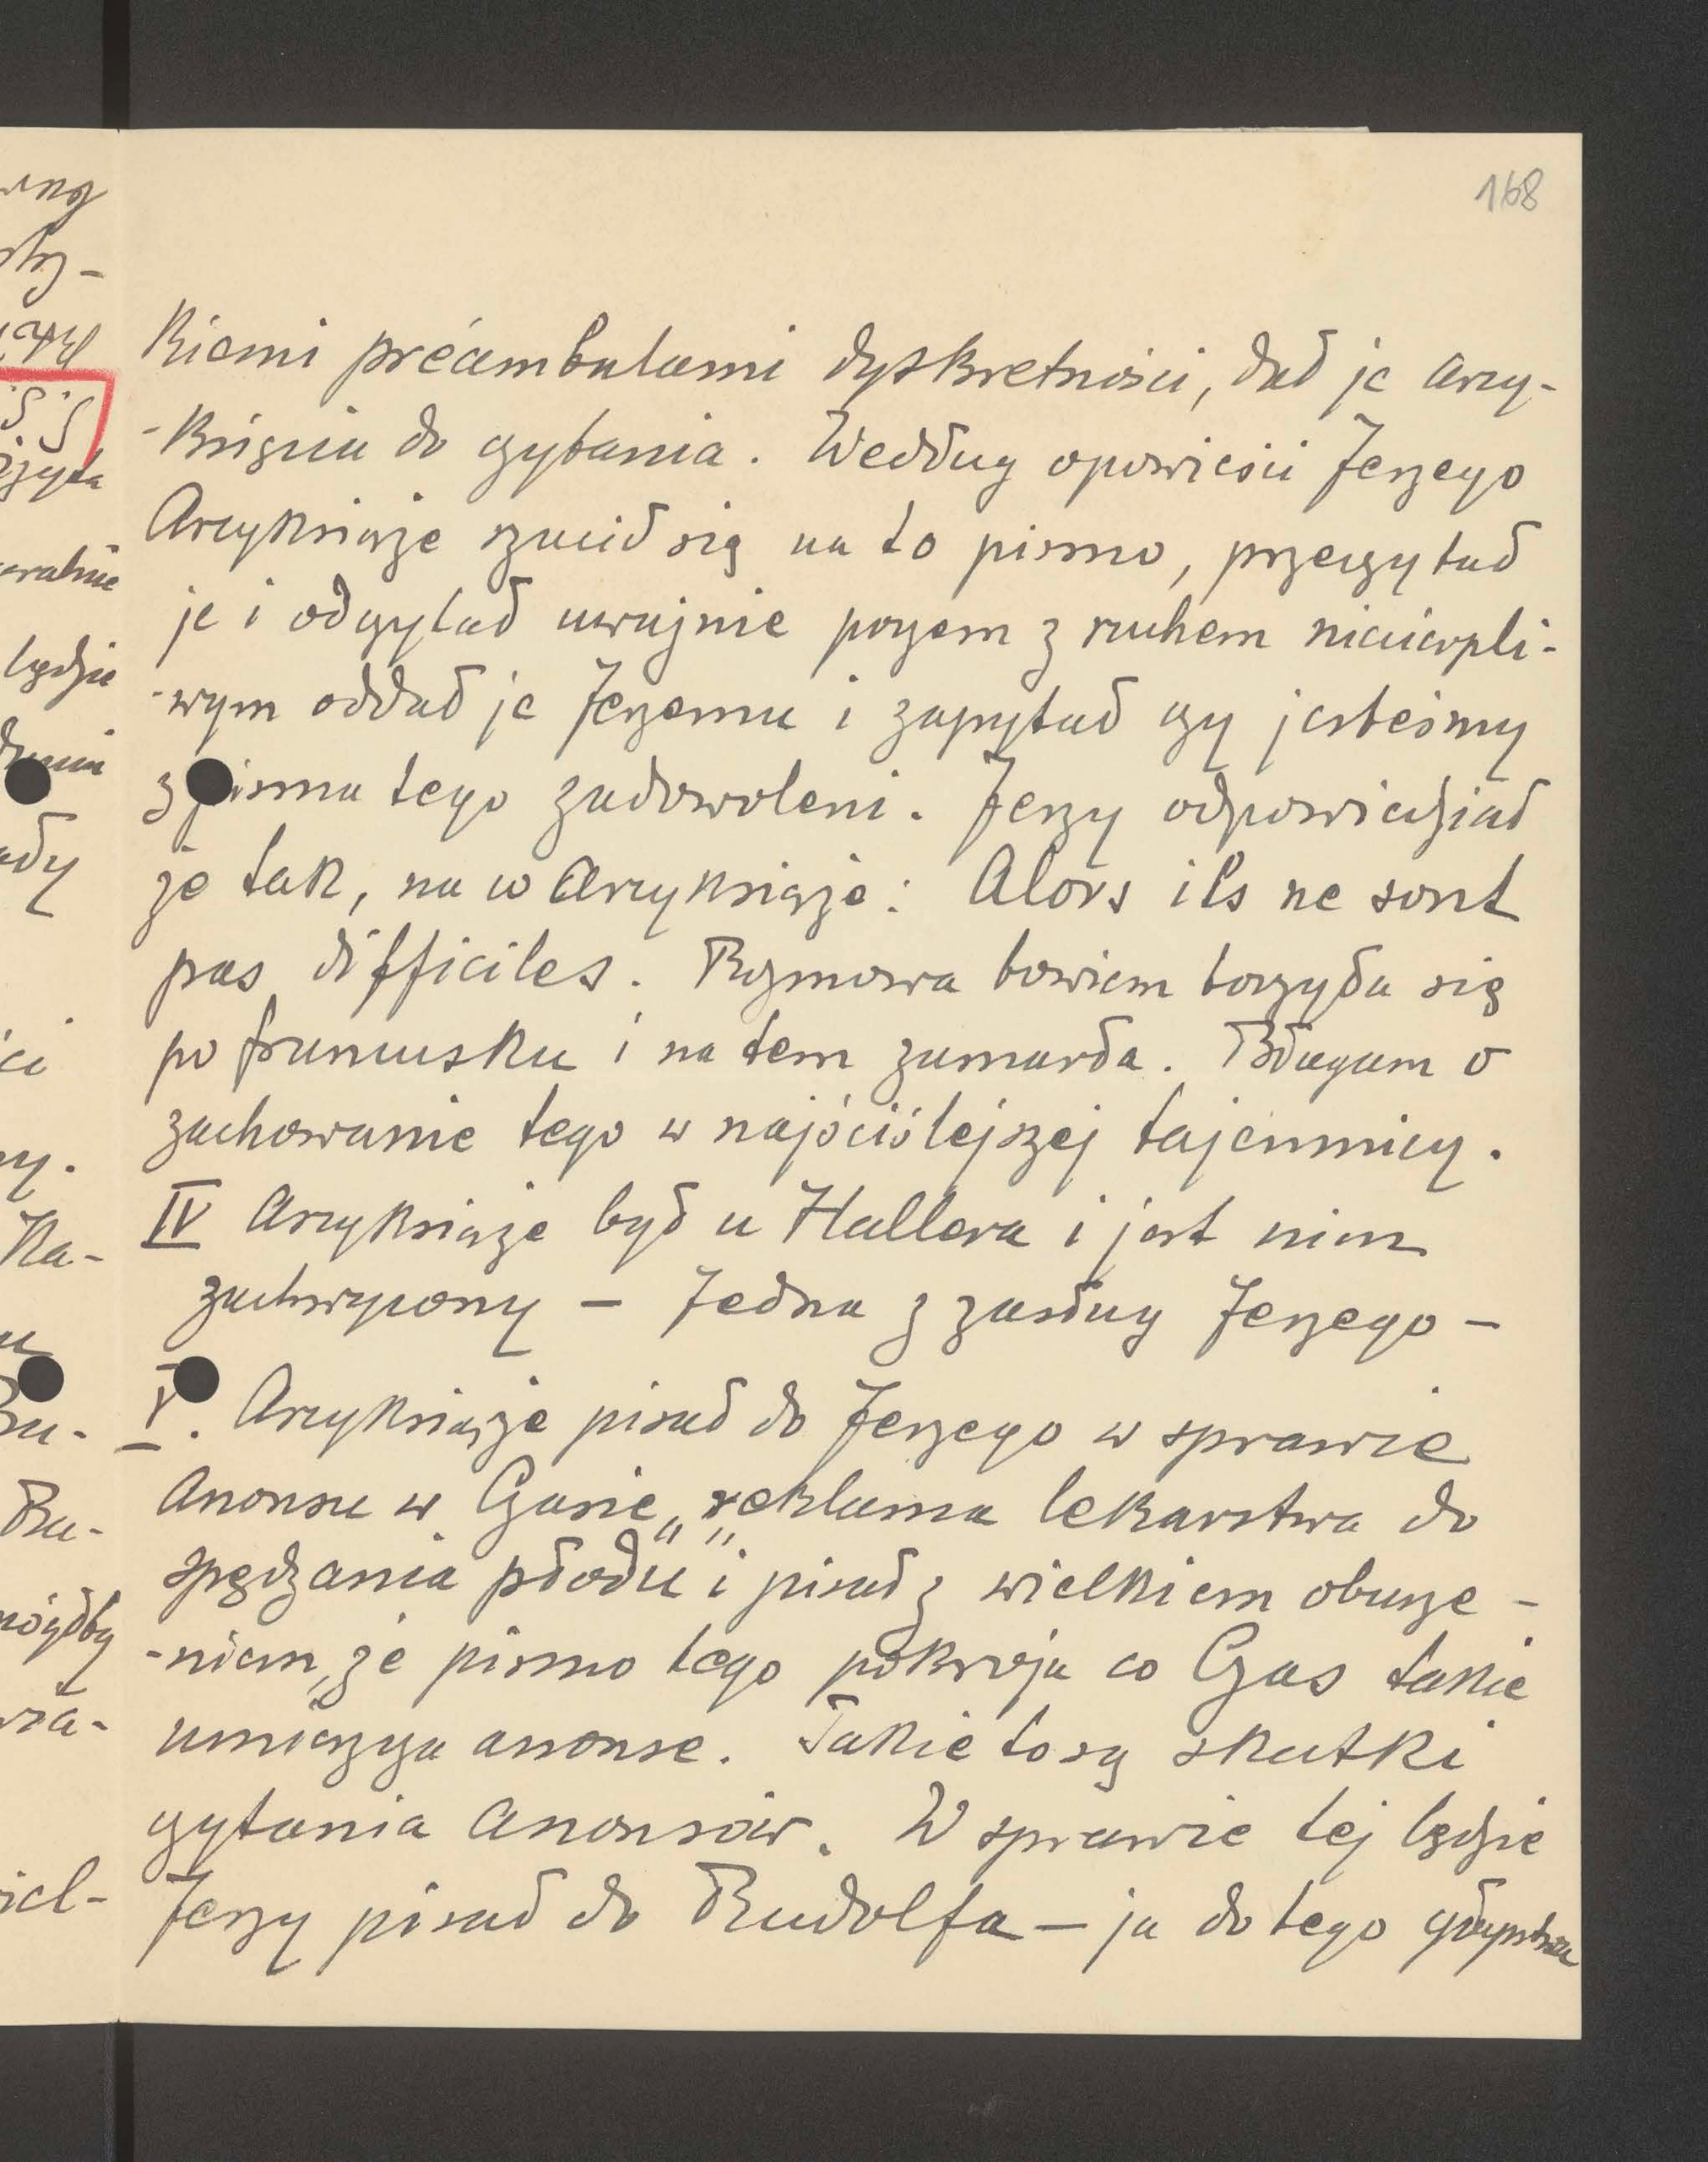 168
kiemi préambulami dyskretności, dał je arcy-
-księciu do czytania. Według opowieści Jerzego
Arcyksiąże rzucił się na to pismo, przeczytał
je i odczytał uważnie poczem z ruchem niecierpli-
-wym oddał je Jerzemu i zapytał czy jesteśmy
z pisma tego zadowoleni. Jerzy odpowiedział
że tak, na co Arcyksiąże: Alors ils ne sont
pas difficiles. Rozmowa bowiem toczyła się
po francusku i na tem zamarła. Błagam o
zachowanie tego w najściślejszej tajemnicy.
IV Arcyksiąże był u Hallera i jest nim
zachwycony – Jedna z zasług Jerzego –
V. Arcyksiąże pisał do Jerzego w sprawie
Anonsu w Czasie „reklama lekarstwa do
spędzania płodu" i pisał z wielkiem oburze-
-niem, że pismo tego pokroju co Czas takie
umieszcza anonse. Takie to są skutki
czytania anonsów. W sprawie tej będzie
Jerzy pisał do Rudolfa – ja do tego